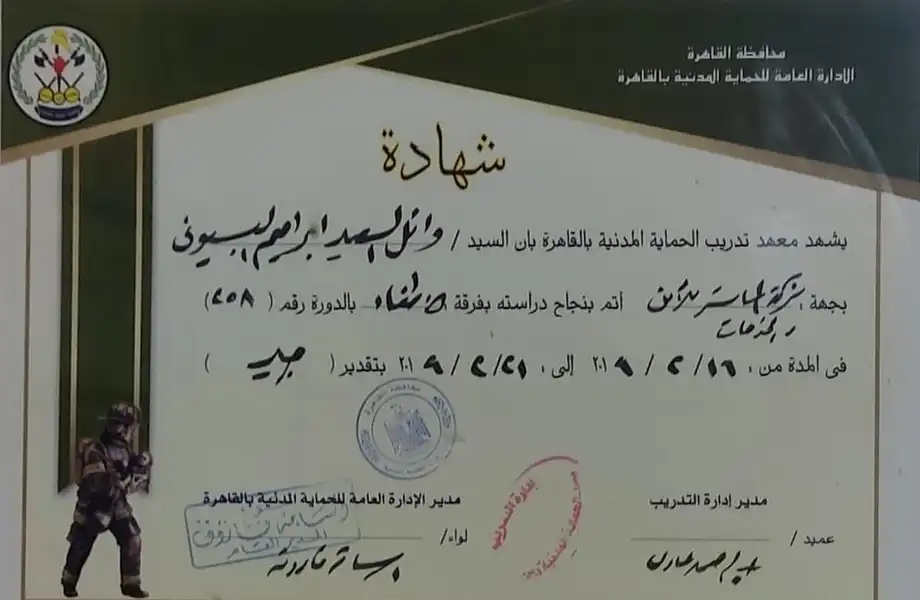 محافظة القاهرة
الإدارة العامة للحماية المدنية بالقاهرة
شهادة
يشهد معهد تدريب الحماية المدنية بالقاهرة بان السيد / وائل السيد ابراهيم البسيونى
بجهة : شركة الماستر للأمن والخدمات أتم بنجاح دراسته بفرقة الاطفاء بالدورة رقم ( ٢٥٨ )
فى المدة من : ١٦ / ٢ / ٢٠١٩ إلى : ٢١ / ٢ / ٢٠١٩ بتقدير ( جيد )
مدير إدارة التدريب
مدير الإدارة العامة للحماية المدنية بالقاهرة
عميد /
لواء/
إدارة التدريب
محافظة القاهرة